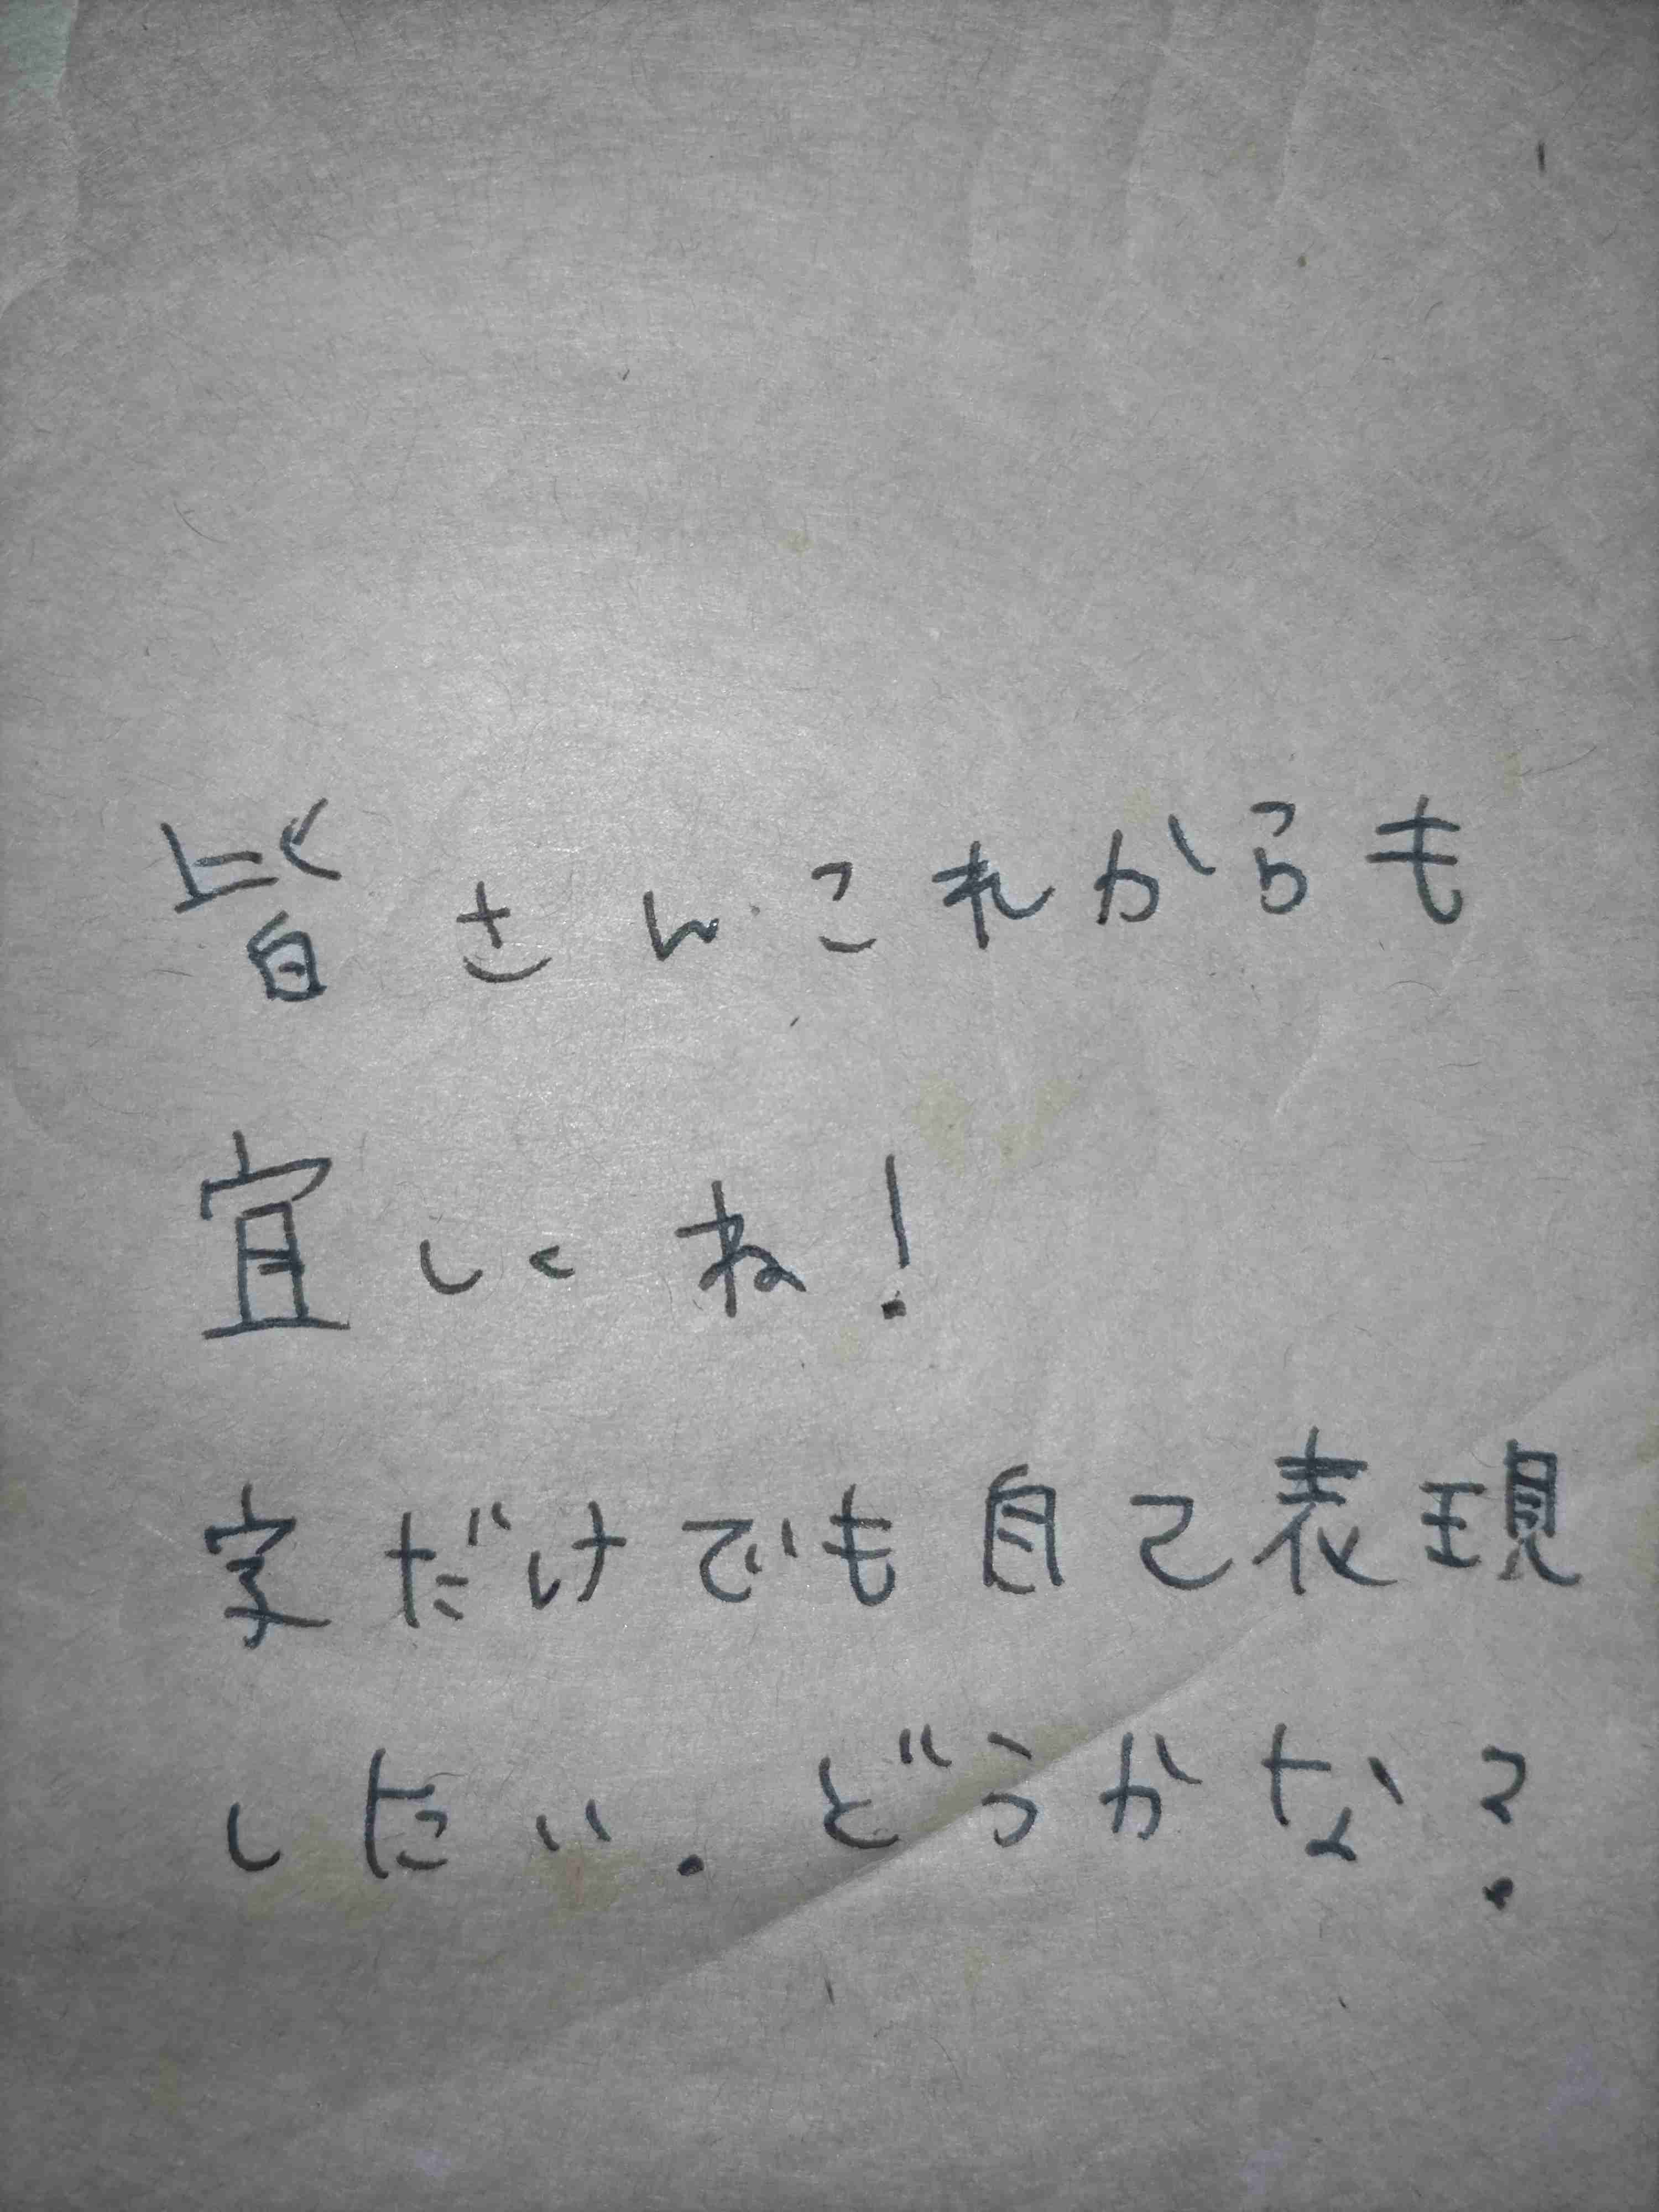 皆さんこれからも
宜しくね!
字だけでも自己表現
したい.どうかな?